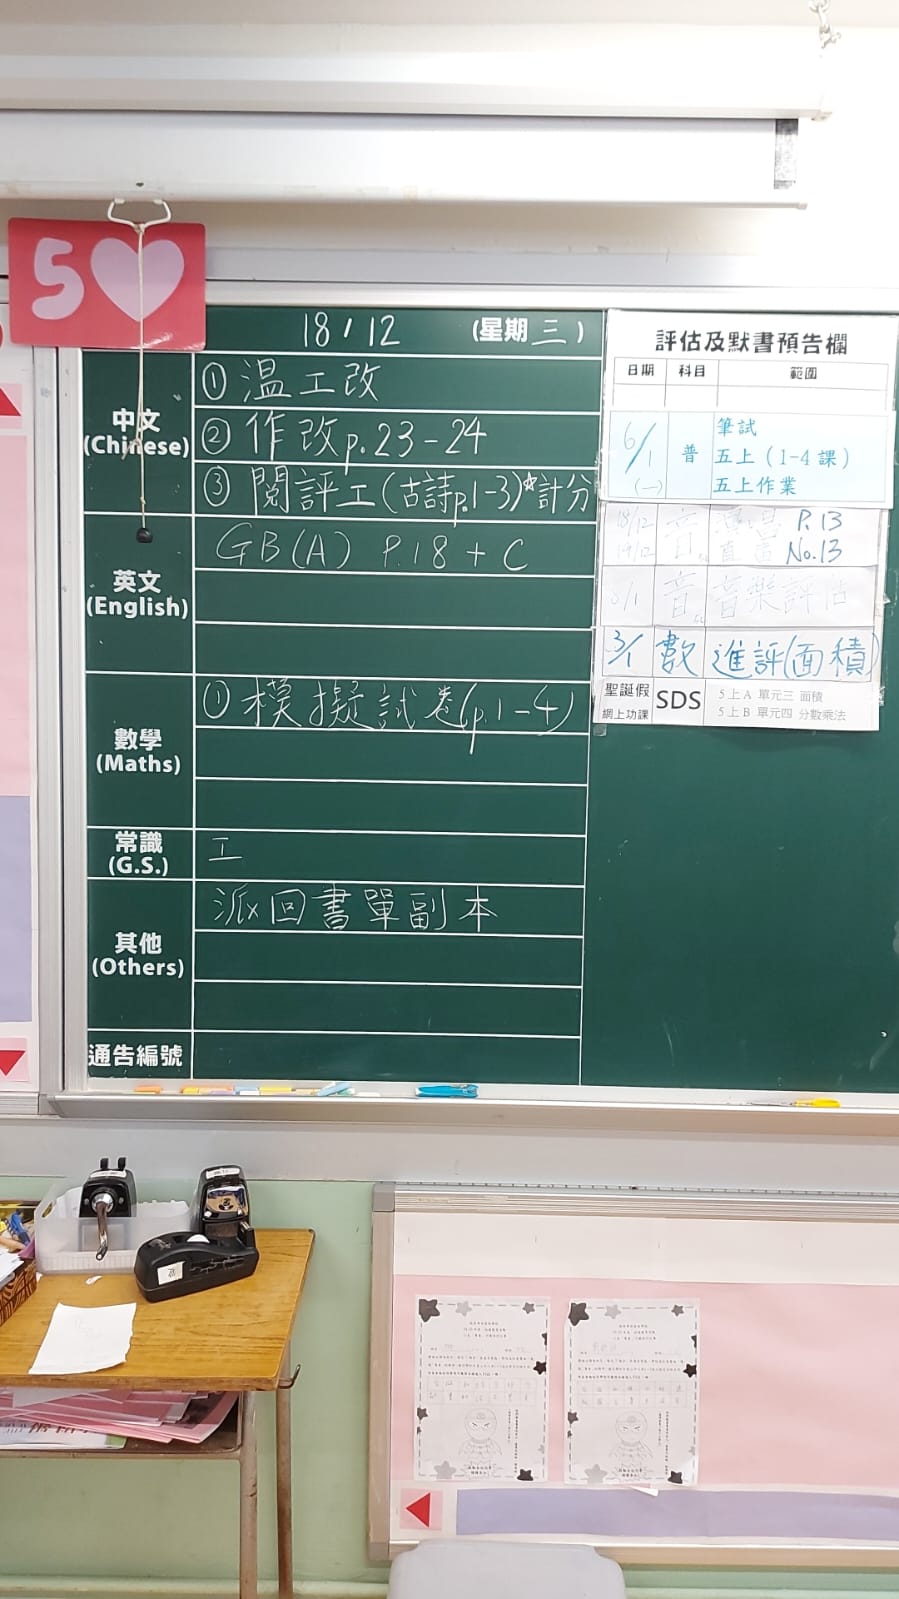 5
18/12 (星期三)
中文
(Chinese)
① 温工改
② 作改p.23-24
③ 閱評工(古詩p.1-3)*計分
英文
(English)
GB(A) P.18 + C
數學
(Maths)
① 模擬試卷(p.1-4)
常識
(G.S.)
工
其他
(Others)
派回書單副本
通告編號
評估及默書預告欄
日期 科目 範圍
6/1 (一) 普 筆試
五上(1-4課)
五上作業
18/12 音 P.13
19/12 No.13
音 音樂評估
3/1 數 進評(面積)
聖誕假
網上功課
SDS
5上A 單元三 面積
5上B 單元四 分數乘法